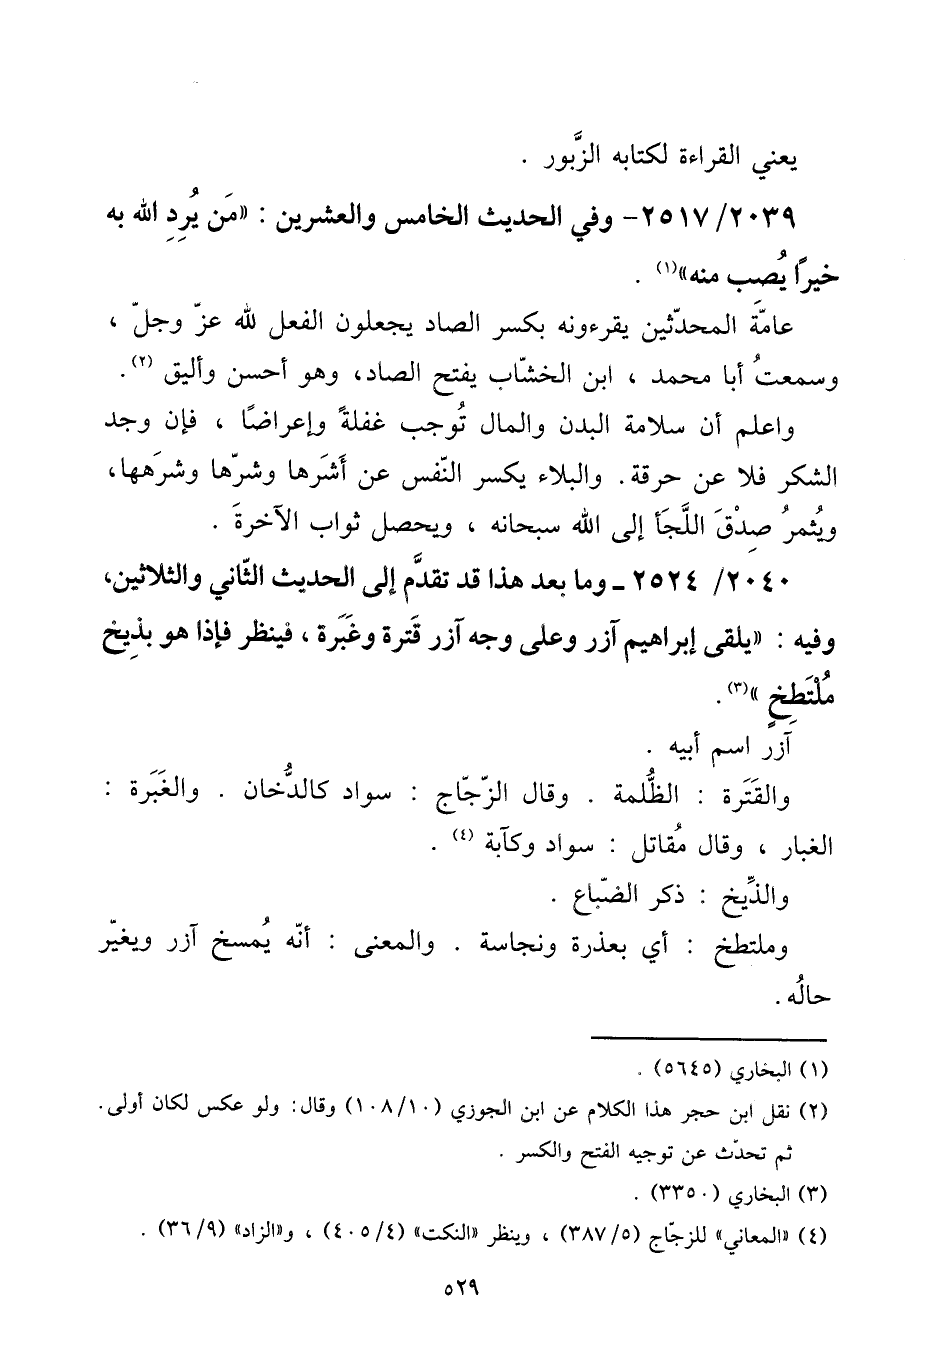 يعني القراءة لكتابه الزَّبور .
٢٥١٧/٢٠٣٩- وفي الحديث الخامس والعشرين : «مَن يُرِدِ الله به
خيرًا يُصِب منه»(١) .
عامّة المحدّثين يقرءونه بكسر الصاد يجعلون الفعل لله عزّ وجلّ ،
وسمعتُ أبا محمد ، ابن الخشّاب يفتح الصاد، وهو أحسن وأليق (٢).
واعلم أن سلامة البدن والمال تُوجب غفلةً وإعراضًا ، فإن وجد
الشكر فلا عن حرقة. والبلاء يكسر النّفس عن أَشَرها وشرّها وشرَهها،
ويُثمرُ صِدْقَ اللَّجَأ إلى الله سبحانه ، ويحصل ثواب الآخرةَ .
٢٠٤٠/ ٢٥٢٤ ـ وما بعد هذا قد تقدَّم إلى الحديث الثّاني والثلاثين،
وفيه : «يلقى إبراهيم آزر وعلى وجه آزر قَترة وغَبَرة ، فينظر فإذا هو بذِيخ
مُلْتَطِخٍ »(٣).
آزر اسم أبيه .
والقَتَرة : الظُّلمة . وقال الزّجّاج : سواد كالدُّخان . والغَبَرة :
الغبار ، وقال مُقاتل : سواد وكآبة (٤) .
والذِّيخ : ذكر الضّباع .
وملتطخ : أي بعذرة ونجاسة . والمعنى : أنّه يُمسخ آزر ويغيّر
حالُه .
(١) البخاري (٥٦٤٥) .
(٢) نقل ابن حجر هذا الكلام عن ابن الجوزي (١٠٨/١٠) وقال: ولو عكس لكان أولى.
ثم تحدّث عن توجيه الفتح والكسر .
(٣) البخاري (٣٣٥٠) .
(٤) «المعاني» للزجّاج (٣٨٧/٥) ، وينظر «النكت» (٤٠٥/٤) ، و«الزاد» (٣٦/٩) .
٥٢٩